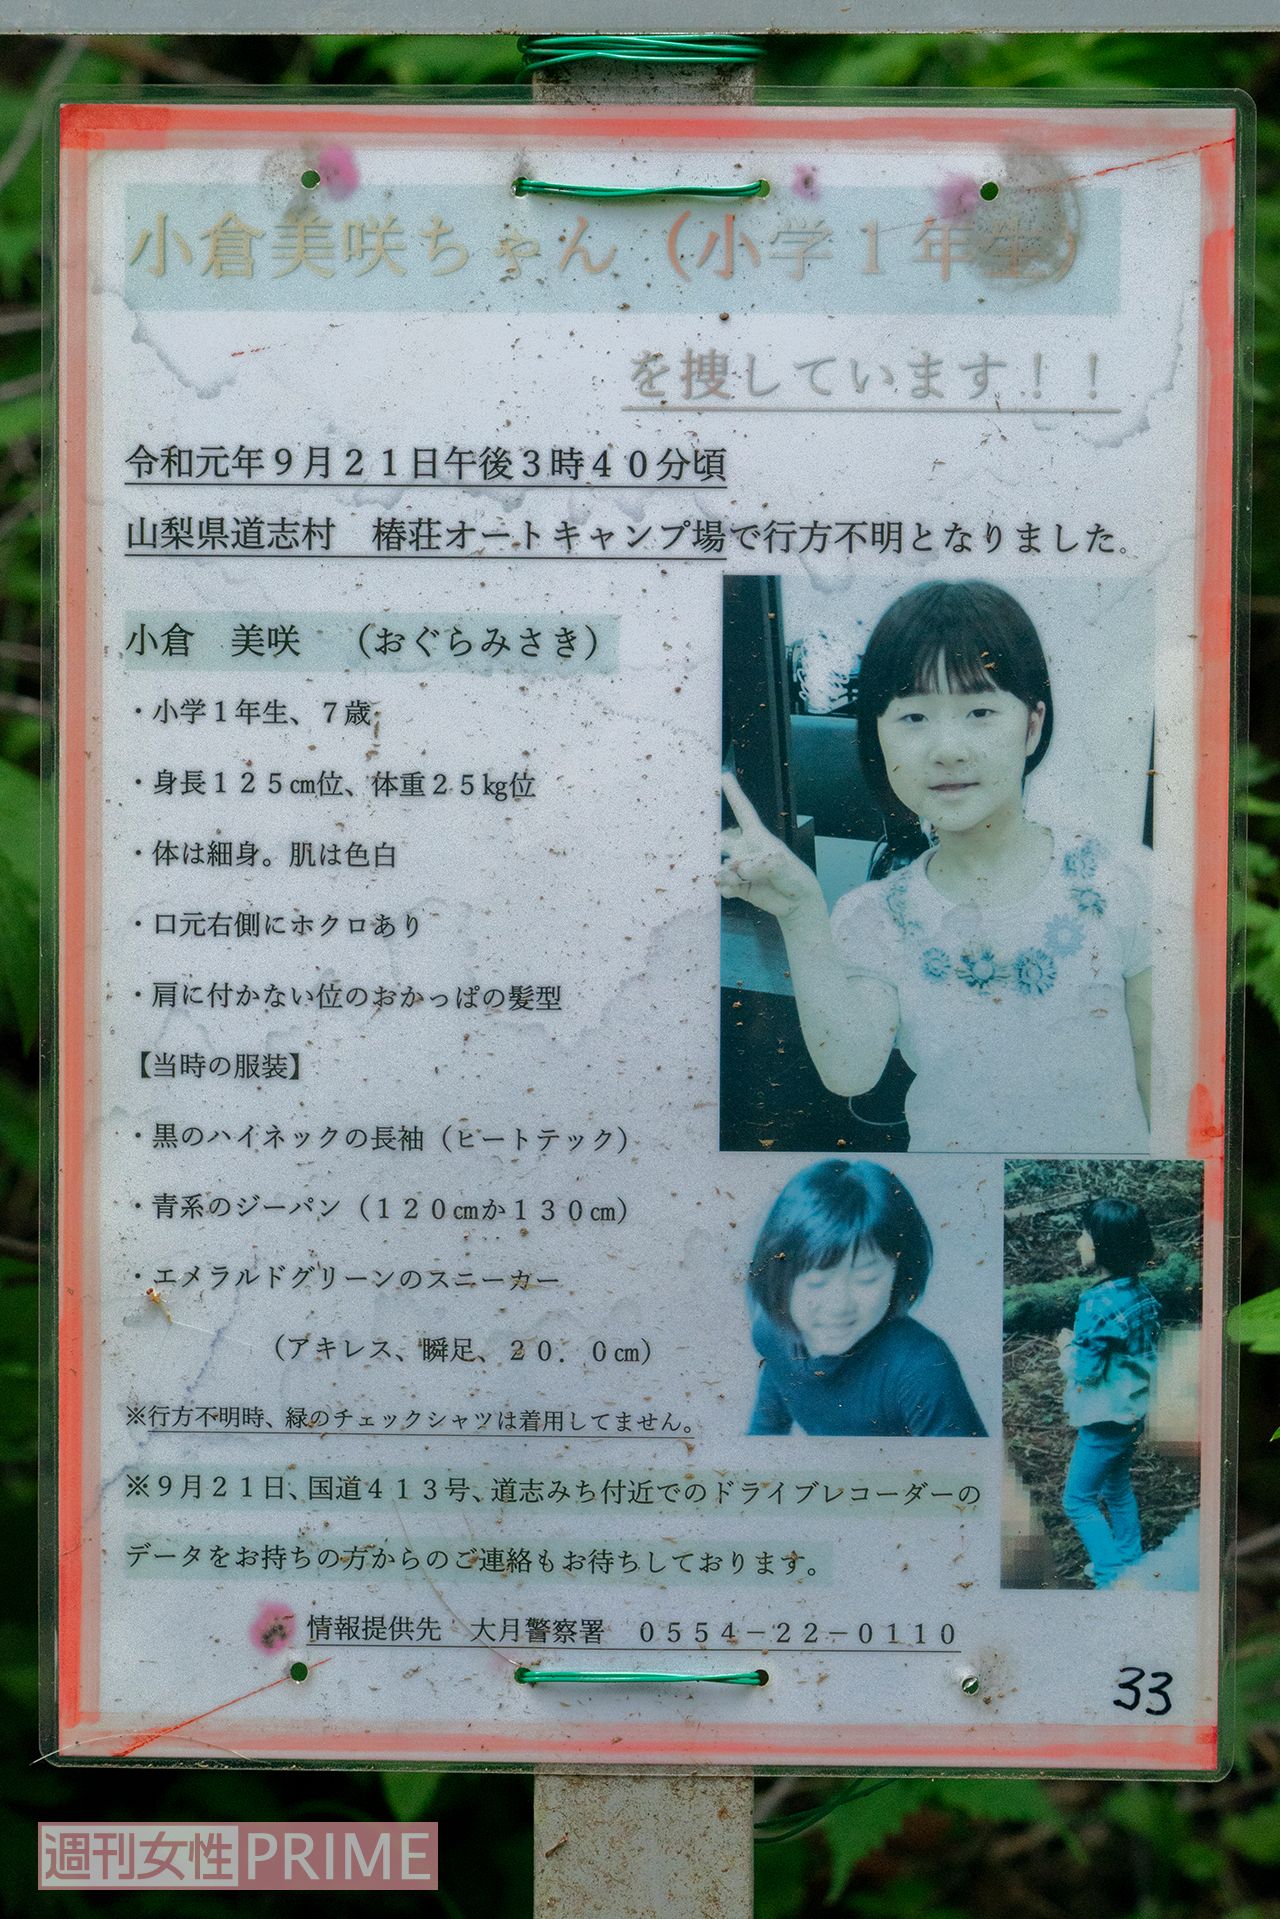 小倉美咲ちゃん（小学１年生）
を捜しています！！
令和元年９月２１日午後３時４０分頃
山梨県道志村　椿荘オートキャンプ場で行方不明となりました。
小倉　美咲　（おぐらみさき）
・小学１年生、７歳
・身長１２５㎝位、体重２５㎏位
・体は細身。肌は色白
・口元右側にホクロあり
・肩に付かない位のおかっぱの髪型
【当時の服装】
・黒のハイネックの長袖（ヒートテック）
・青系のジーパン（１２０㎝か１３０㎝）
・エメラルドグリーンのスニーカー
（アキレス、瞬足、２０．０㎝）
※行方不明時、緑のチェックシャツは着用してません。
※９月２１日、国道４１３号、道志みち付近でのドライブレコーダーの
データをお持ちの方からのご連絡もお待ちしております。
情報提供先　大月警察署　０５５４－２２－０１１０
33
週刊女性PRIME